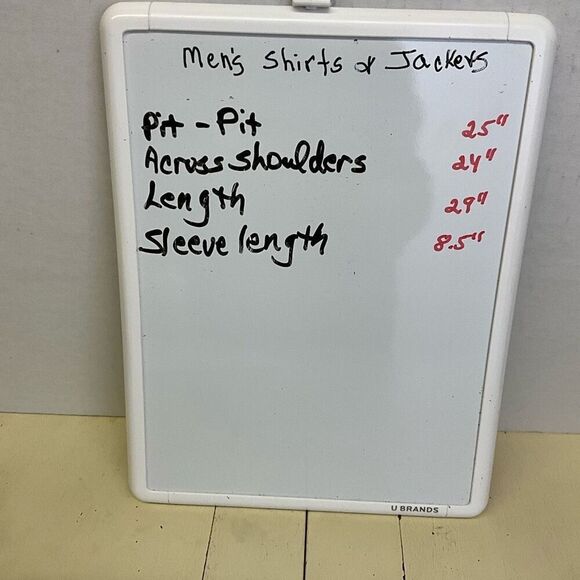 Men's Shirts or Jackets
Pit - Pit 25"
Across shoulders 24"
Length 29"
Sleeve length 8.5"
U BRANDS